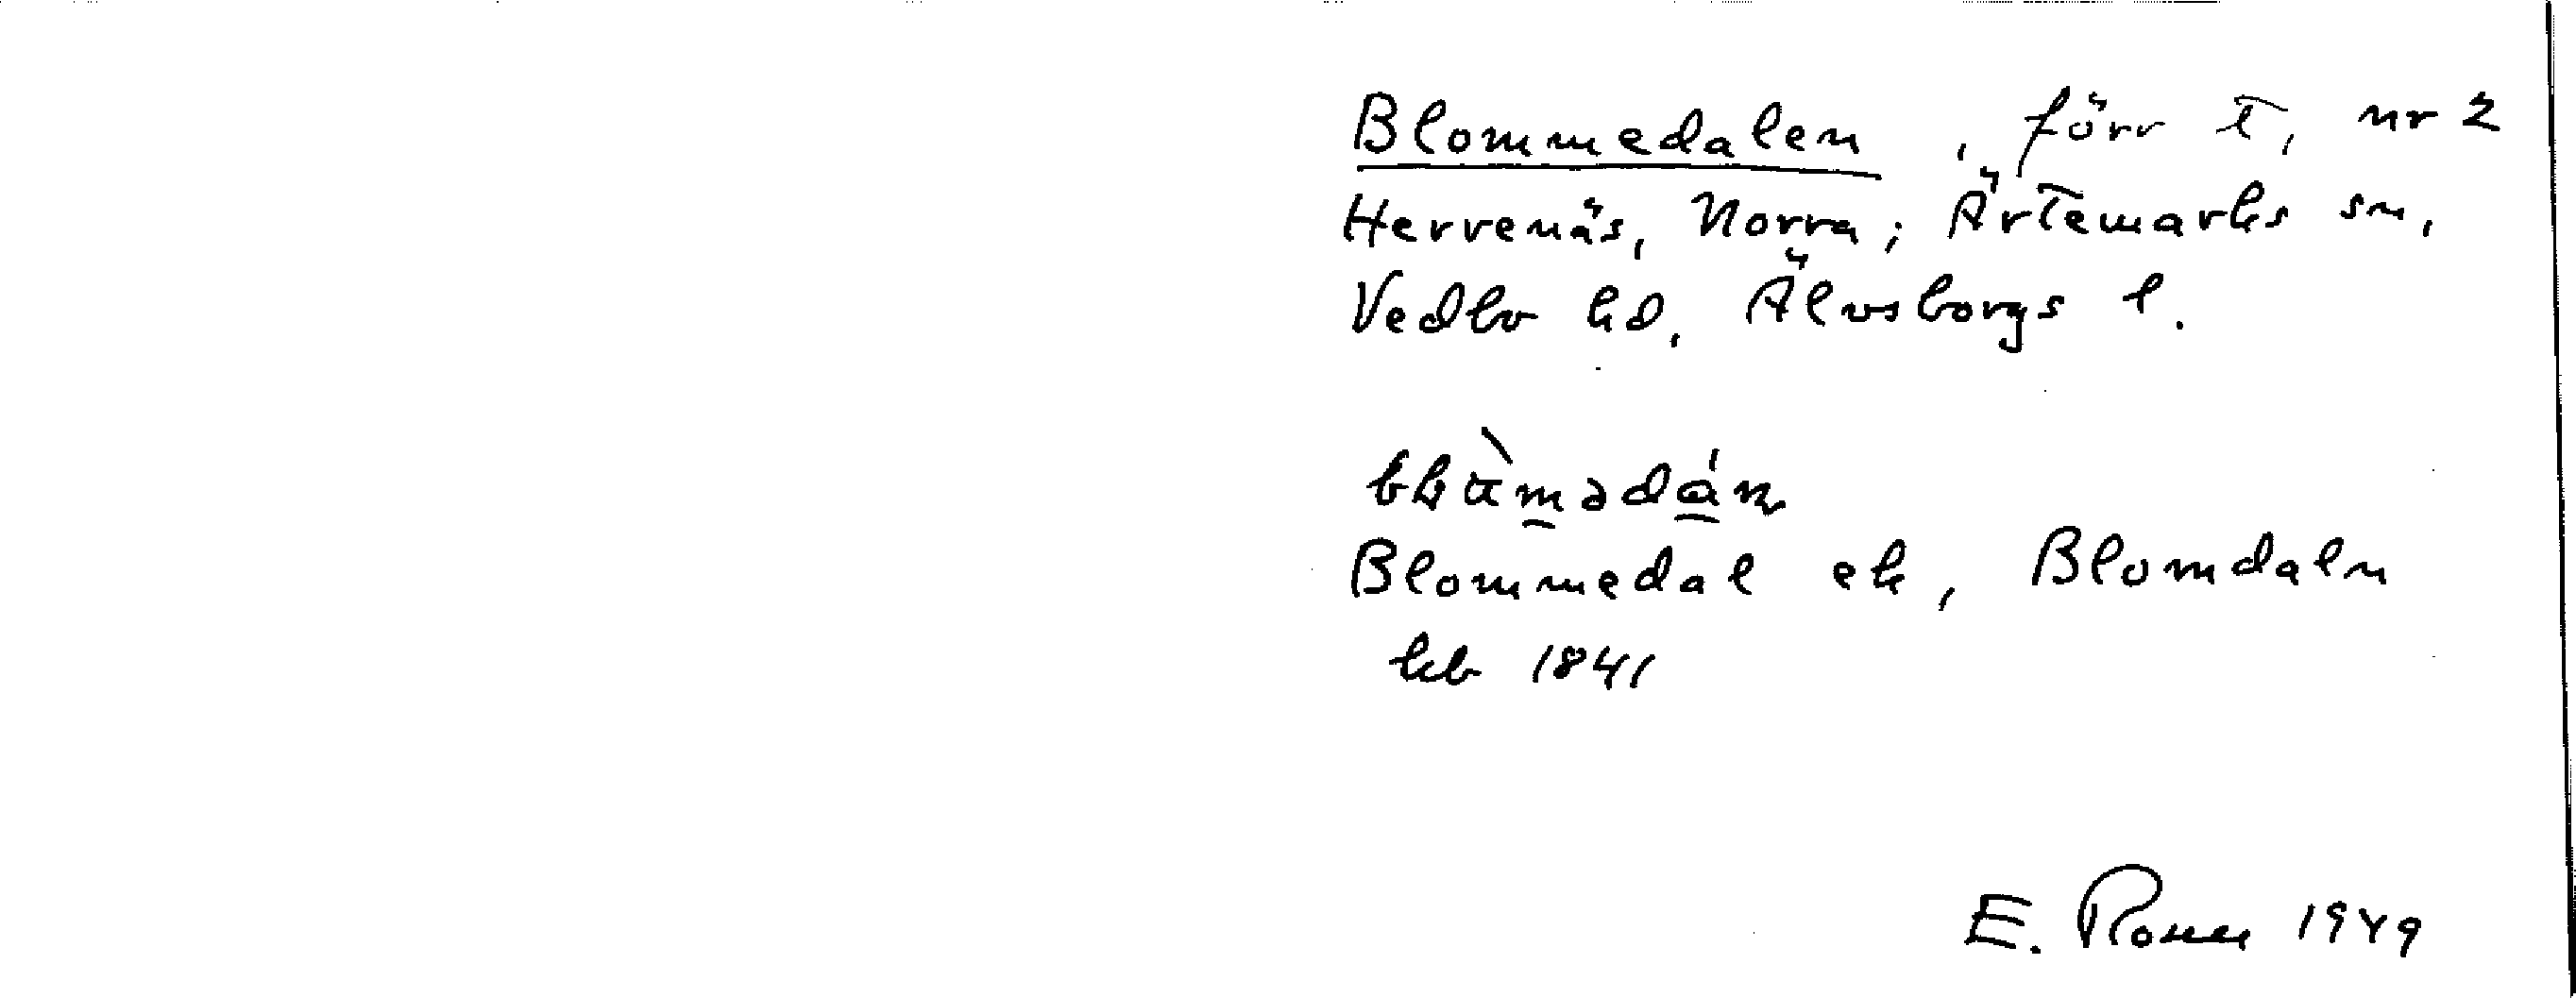 Blommedalen, förr t, nr 2
Hervenäs, Norra; Ärtemarks sn,
Vedbo hd, Älvsborgs l.
Blommedal ek, Blomdaln
hfb 1841
E. Rosen 1949